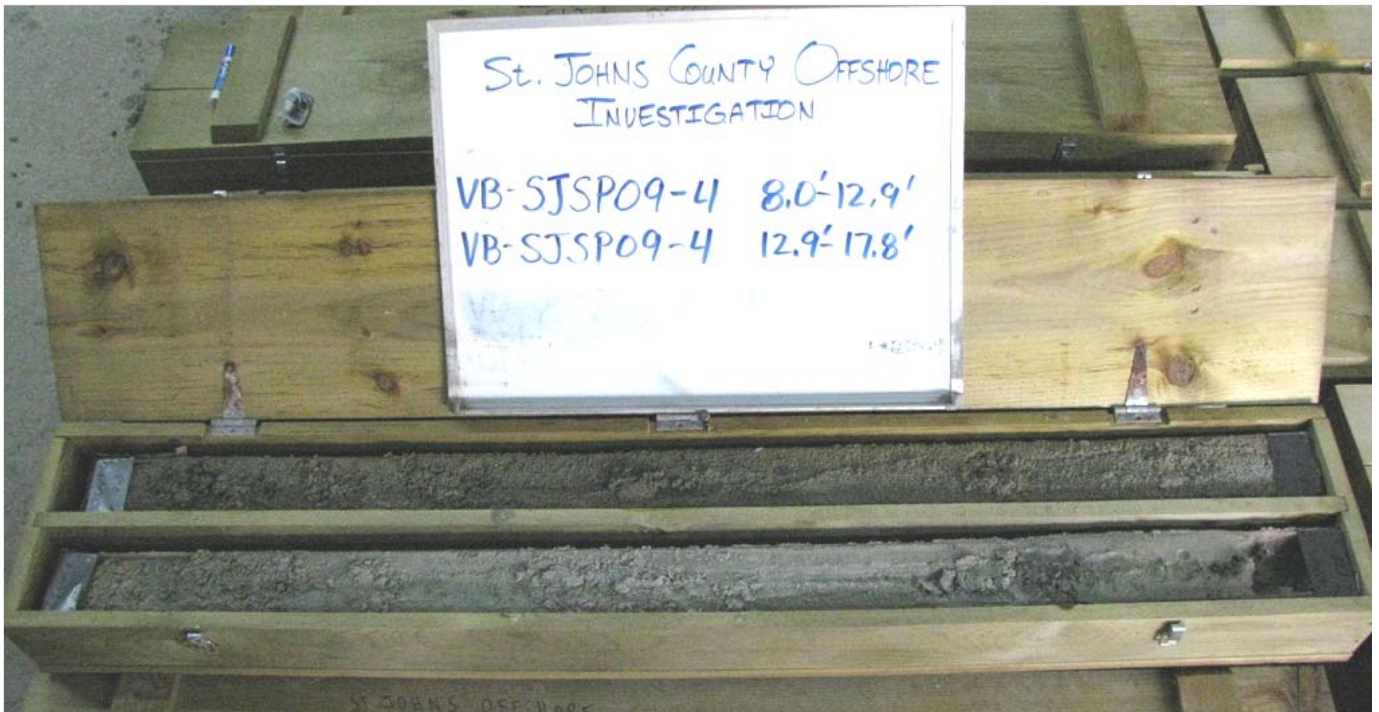 St. JOHNS COUNTY OFFSHORE
INVESTIGATION
VB-SJSP09-4 8.0'-12.9'
VB-SJSP09-4 12.9'-17.8'
ST JOHNS OFFSHORE